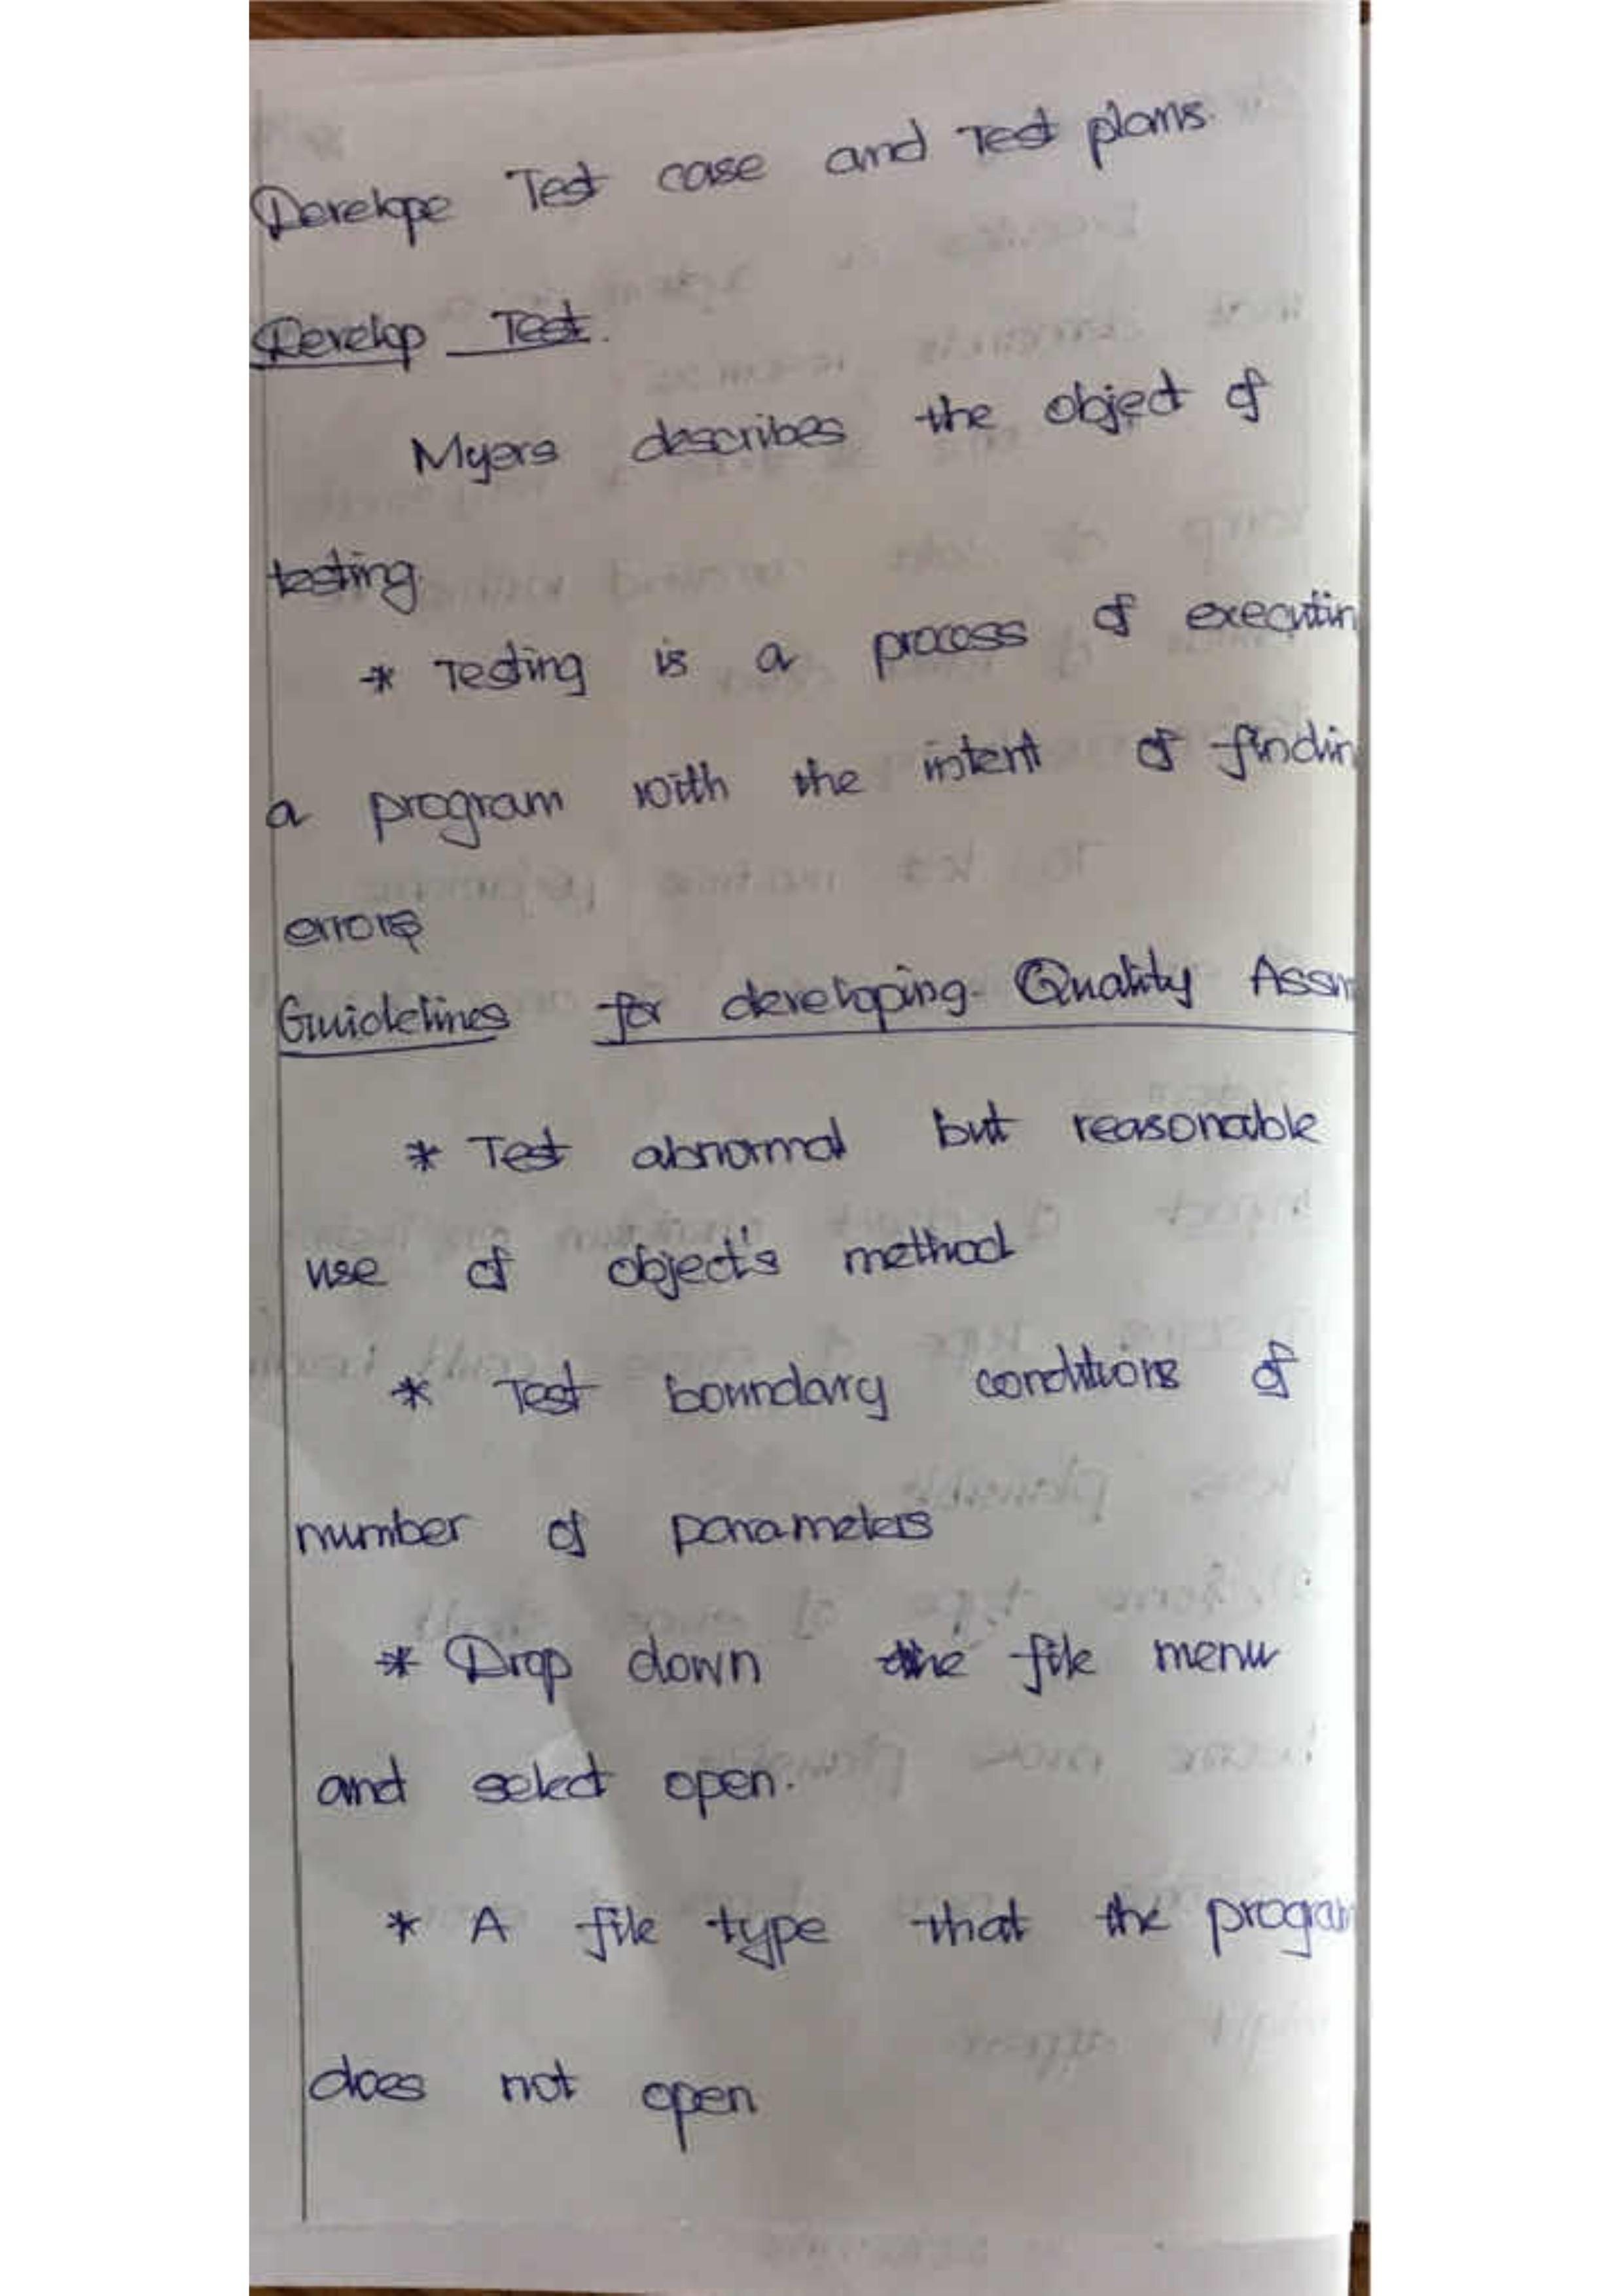 Develope Test case and Test plans.
Develop Test.
Myers describes the object of
testing.
* Testing is a process of executin
a program with the intent of findin
errors
Guidelines for developing Quality Assu
* Test abnormal but reasonable
use of object's method
* Test boundary conditions of
number of parameters
* Drop down the file menu
and select open.
* A file type that the progam
does not open